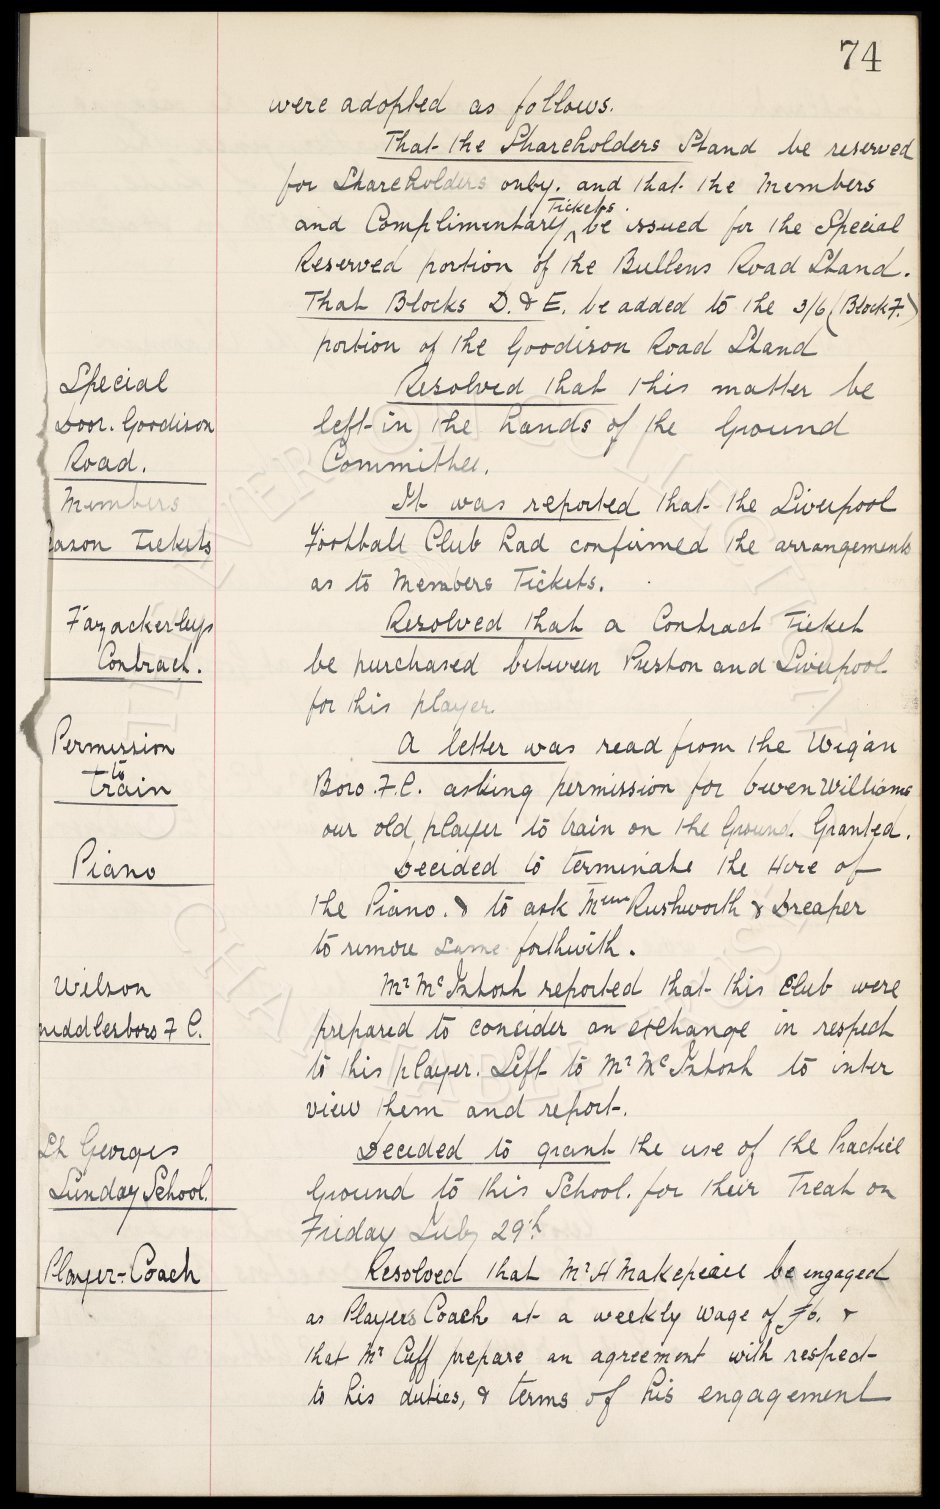 74
were adopted as follows.
That the Shareholders Stand be reserved
for Shareholders only. and that the Members
and Complimentary Tickets be issued for the Special
Reserved portion of the Bullens Road Stand.
That Blocks D. & E. be added to the 3/6 (Block F.)
portion of the Goodison Road Stand
Special
Door. Goodison
Road.
Resolved that this matter be
left in the hands of the Ground
Committee.
Members
Season Tickets
It was reported that the Liverpool
Football Club had confirmed the arrangements
as to Members Tickets.
Fazackerleys
Contract.
Resolved that a Contract Ticket
be purchased between Preston and Liverpool
for this player.
Permission
to
train
A letter was read from the Wigan
Boro. F.C. asking permission for Owen Williams
our old player to train on the Ground. Granted.
Piano
Decided to terminate the Hire of
the Piano. & to ask Messrs Rushworth & Dreaper
to remove same forthwith.
Wilson
Middlesboro F C.
Mr McIntosh reported that this Club were
prepared to consider an exchange in respect
to this player. Left to Mr McIntosh to inter
view them and report.
St Georges
Sunday School.
Decided to grant the use of the Practice
Ground to this School. for their Treat on
Friday July 29th
Player-Coach
Resolved that Mr H Makepeace be engaged
as Players Coach at a weekly wage of £6. &
that Mr Cuff prepare an agreement with respect
to his duties, & terms of his engagement
THE EVERTON COLLECTION
CHARITABLE TRUST